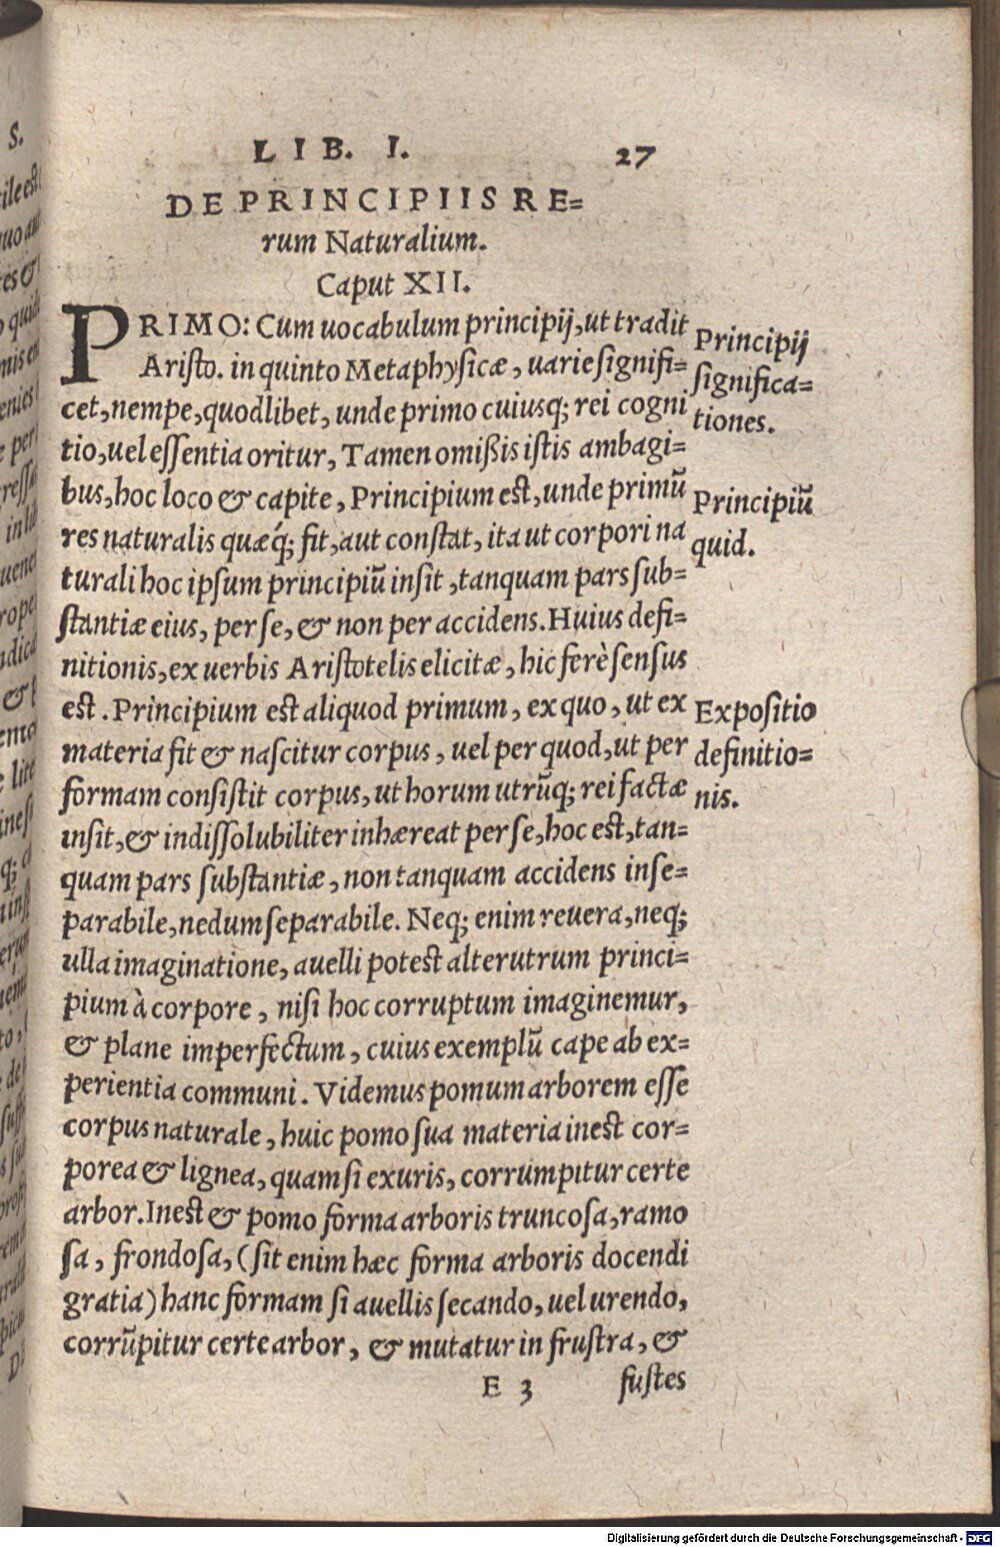 LIB. I. 27
DE PRINCIPIIS RE=
rum Naturalium.
Caput XII.
PRIMO: Cum uocabulum principij, ut tradit
Aristo. in quinto Metaphysicæ, uarie signifi=
cet, nempe, quodlibet, unde primo cuiusq; rei cogni
tio, uel essentia oritur, Tamen omißis istis ambagi=
bus, hoc loco & capite, Principium est, unde primũ
res naturalis quæq́; fit, aut constat, ita ut corpori na
turali hoc ipsum principiũ insit, tanquam pars sub=
stantiæ eius, per se, & non per accidens. Huius defi=
nitionis, ex uerbis Aristotelis elicitæ, hic ferè sensus
est. Principium est aliquod primum, ex quo, ut ex
materia fit & nascitur corpus, uel per quod, ut per
formam consistit corpus, ut horum utrũq; rei factæ
insit, & indissolubiliter inhæreat per se, hoc est, tan=
quam pars substantiæ, non tanquam accidens inse=
parabile, nedum separabile. Neq; enim reuera, neq;
ulla imaginatione, auelli potest alterutrum princi=
pium à corpore, nisi hoc corruptum imaginemur,
& plane imperfectum, cuius exemplũ cape ab ex=
perientia communi. Videmus pomum arborem esse
corpus naturale, huic pomo sua materia inest cor=
porea & lignea, quam si exuris, corrumpitur certe
arbor. Inest & pomo forma arboris truncosa, ramo
sa, frondosa, (sit enim hæc forma arboris docendi
gratia) hanc formam si auellis secando, uel urendo,
corrũpitur certe arbor, & mutatur in frustra, &
E 3 fustes
Principij
significa=
tiones.
Principiũ
quid.
Expositio
definitio=
nis.
Digitalisierung gefördert durch die Deutsche Forschungsgemeinschaft - DFG